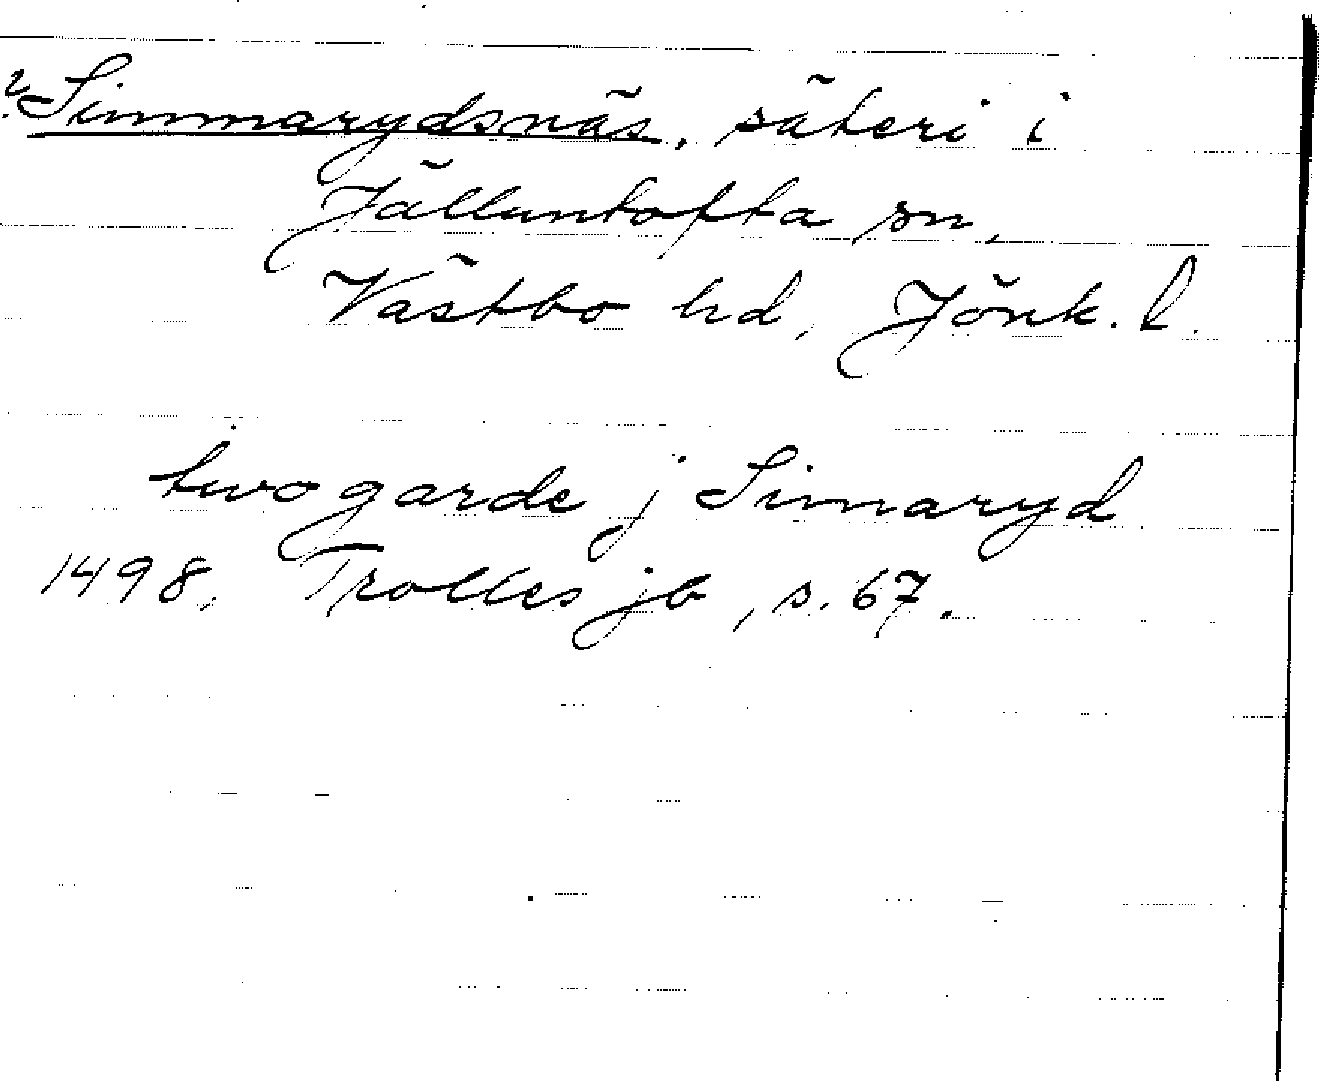 ? Simmarydsnäs, säteri i
Jälluntofta sn,
Västbo hd, Jönk. l.
two garde j Simaryd
1498. Trolles jb, s. 67.